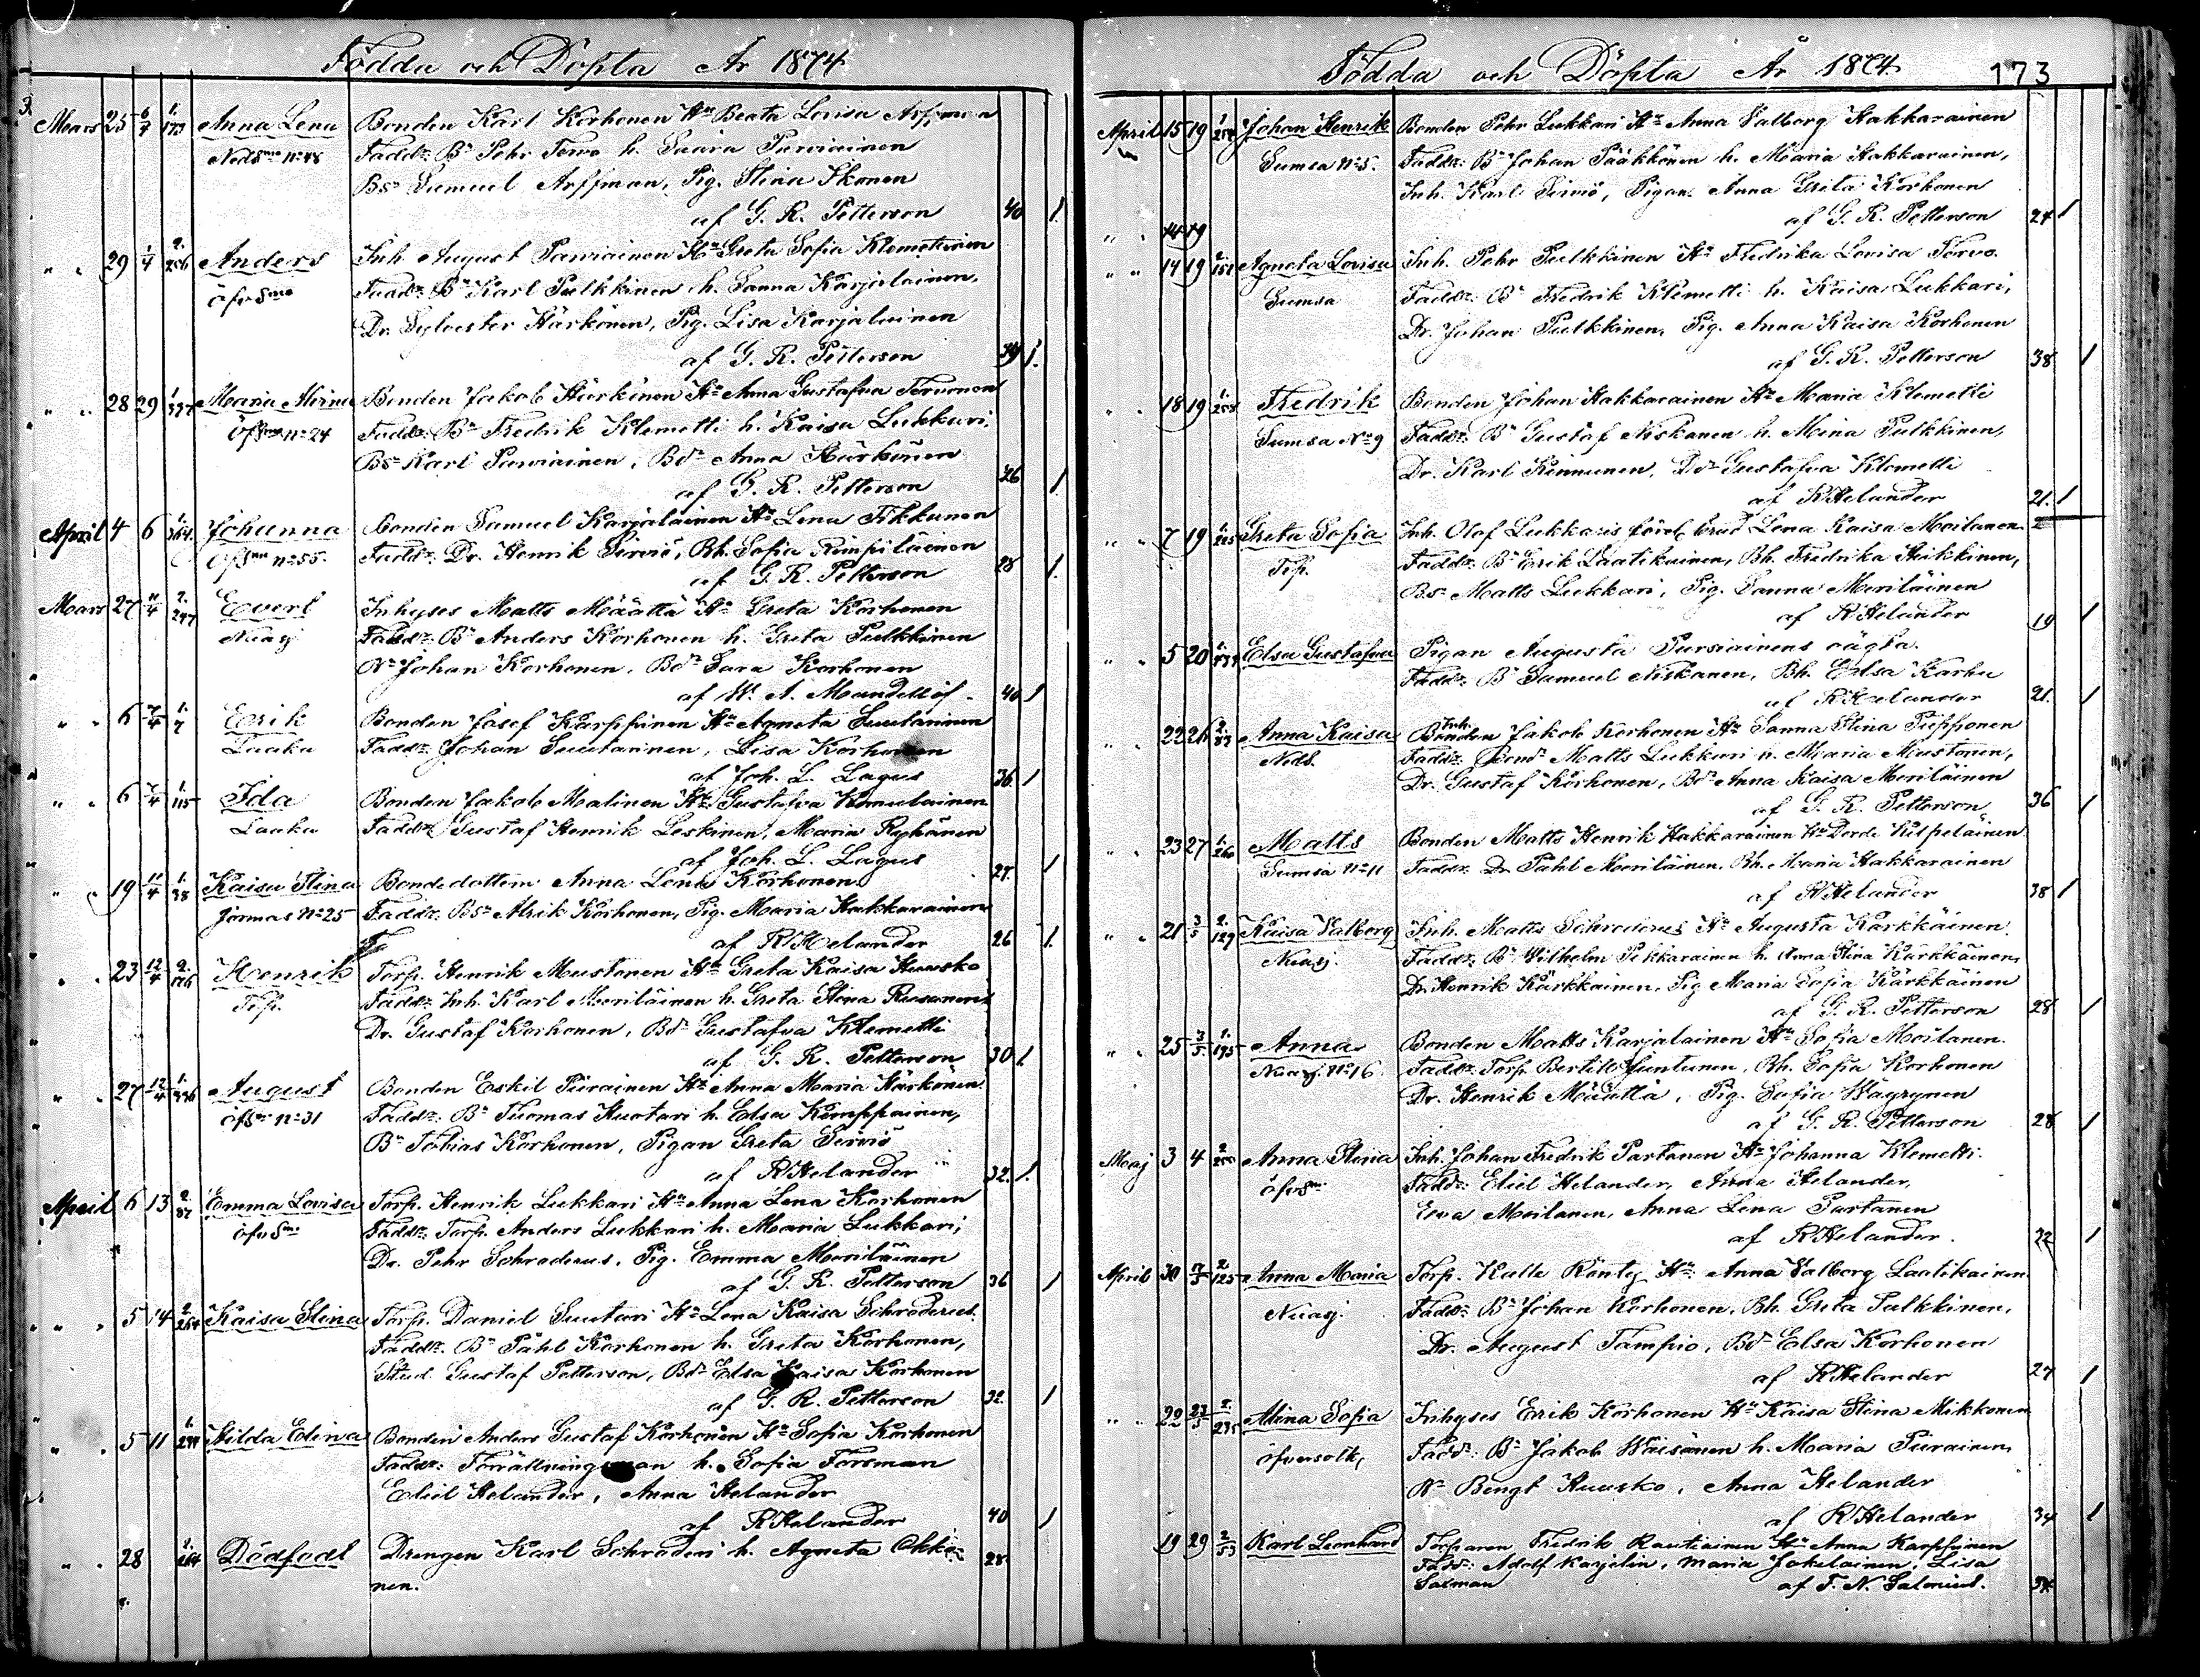 Födda och Döpta År 1874
Mars 25 6/4 1/173 Anna Lena Bonden Karl Korhonen Hu Beata Lovisa Arffman
Nedsmo No 48 Faddr. Bn Pehr Tervo h. Saara Parviainen
Bs. Samuel Arffman, Pig. Stina Ikonen
af G. R. Petterson 40 1
" " 29 1/4 2/256 Anders Inh. August Parviainen Hu Greta Sofia Klemettinen
öfvSmo Faddr. Bn Karl Pulkkinen h. Sanna Karjalainen,
Dr. Sylvester Härkönen, Pig. Lisa Karjalainen
af G. R. Petterson 39 1.
" " 28 29 Maria Mina Bonden Jakob Härkönen Hu Anna Gustafva Tervonen
ÖfSmo No 24 Faddr. Bn Fredrik Klemetti h. Kaisa Lukkari,
Bs. Karl Parviainen, Bdr Anna Härkönen
af G. R. Petterson 26 1
April 4 6 1/364 Johanna Bonden Samuel Karjalainen Hu Lena Tikkunen
ÖfSmo No 55. Faddr. Dr. Henrik Sirviö, Bh. Sofia Rimpiläinen
af G. R. Petterson 28 1.
Mars 27 11/4 2/247 Evert Inhyses Matts Määttä Hu Greta Korhonen
Nuasj Faddr. Bn Anders Korhonen h. Greta Pulkkinen
Nn Johan Korhonen, Bdr Sara Korhonen
af W. A. Mandellöf 40 1
" " 6 7/4 1/7 Erik Bonden Josef Karppinen Hu Agneta Suutarinen
Laaka Faddr. Johan Suutarinen, Lisa Korhonen
af Joh. L. Lagus 36 1
" " 6 7/4 1/115 Ida Bonden Jakob Malinen Hu Gustafva Komulainen
Laaka Faddr. Gustaf Henrik Leskinen, Maria Ryhänen
af Joh. L. Lagus 27. 1
" " 19 11/4 1/38 Kaisa Stina Bondedottern Anna Lena Korhonen
Jormas No 25 Faddr. Bs. Alrik Korhonen, Pig. Maria Hakkarainen
af R Helander 26 1.
" " 23 12/4 2/176 Henrik Torp. Henrik Mustonen Hu Greta Kaisa Huusko
Trp. Faddr. Inh. Karl Meriläinen h. Greta Stina Rusanen
Dr. Gustaf Korhonen, Bdr Gustafva Klemetti
af G. R. Petterson 30 1
" " 27 12/4 1/336 August Bonden Eskil Piirainen Hu Anna Maria Härkönen
öfSmo No 31 Faddr. Bn Thomas Huotari h. Elsa Kemppainen,
Bn Tobias Korhonen, Pigan Greta Sirviö
af R Helander 32. 1.
April 6 13 2/87 Emma Lovisa Torp. Henrik Lukkari Hu Anna Lena Korhonen
öfvSmo Faddr. Torp. Anders Lukkari h. Maria Lukkari,
Dr. Pehr Schroderus, Pig. Emma Meriläinen
af G. R. Petterson 36 1
" " 5 14 2/264 Kaisa Stina Torp. Daniel Suutari Hu Lena Kaisa Schroderus
Faddr. Bn Påhl Korhonen h. Greta Korhonen,
Stud. Gustaf Petterson, Bdr Elsa Kaisa Korhonen
af G. R. Petterson 32. 1
" " 5 11 Hilda Edina Bonden Anders Gustaf Korhonen Hu Sofia Korhonen
Faddr. Förrättningsman h. Sofia Forsman
Eliel Helander, Anna Helander
af R Helander 40 1
" " 28 1/264 Dödfödt Drengen Karl Schroderi h. Agneta Okko-
nen. 28
Födda och Döpta År 1874. 173
April 15 19 Johan Henrik Bonden Pehr Lukkari Hu Anna Valborg Hakkarainen
Sumsa No 5. Faddr. Bn Johan Pääkkönen h. Maria Hakkarainen,
Inh. Karl Sirviö, Pigan Anna Greta Korhonen
af G. R. Petterson 24 1
" " 14 19
" " 14 19 Agneta Lovisa Inh. Pehr Pulkkinen Hu Fredrika Lovisa Tervo.
Sumsa Faddr. Bn Fredrik Klemetti h. Kaisa Lukkari,
Dr. Johan Pulkkinen, Pig. Anna Kaisa Korhonen
af G. R. Petterson 38 1
" " 18 19 1/258 Fredrik Bonden Johan Hakkarainen Hu Maria Klemetti
Sumsa No 9 Faddr. Bn Gustaf Niskanen h. Mina Pulkkinen,
Dr. Karl Kinnunen, Bdr Gustafva Klemetti
af R Helander 21. 1
" " 7 19 Greta Sofia Inh. Olof Lukkaris förel. brud Lena Kaisa Moilanen
Trp. Faddr. Bn Erik Laatikainen, Bh. Fredrika Heikkinen,
Bs. Matts Lukkari, Pig. Sanna Meriläinen
af R Helander 19 1
" " 5 20 Elsa Gustafva Pigan Augusta Pursiainens oägta.
Faddr. Bn Samuel Niskanen, Bh. Elsa Karhu
af R Helander 21. 1
" " 22 26 Anna Kaisa Inh. Bonden Jakob Korhonen Hu Sanna Stina Tupponen
Neds. Faddr. Bonden Matts Lukkari h. Maria Mustonen,
Dr. Gustaf Korhonen, Bdr Anna Kaisa Meriläinen
af G. R. Petterson 36 1
" " 23 27 1/260 Matts Bonden Matts Henrik Hakkarainen Hu Dorde Kilpeläinen
Sumsa No 11 Faddr. Dr. Påhl Meriläinen, Bh. Maria Hakkarainen
af R Helander 38 1
" " 21 3/5 2/129 Kaisa Valborg Inh. Matts Schroderus Hu Augusta Karkkäinen
Nuasj. Faddr. Bn Wilhelm Pikkarainen h. Anna Stina Kärkkäinen,
Dr. Henrik Kärkkäinen, Pig Maria Sofia Kärkkäinen
af G. R. Petterson 28 1
" " 25 3/5 1/195 Anna Bonden Matts Karjalainen Hu Sofia Moilanen.
Nuasj. No 16 Faddr. Torp. Bertill Juntunen, Bh. Sofia Korhonen
Dr. Henrik Määttä, Pig. Sofia Wäyrynen
af G. R. Petterson 28 1
Maj 3 4 Anna Stina Inh. Johan Fredrik Partanen Hu Johanna Klemetti.
öfvSmo Faddr. Eliel Helander, Anna Helander,
Eva Moilanen, Anna Lena Partanen
af R Helander. 22 1
April 30 7/5 2/125 Anna Maria Torp. Kalle Rönty Hu Anna Valborg Laatikainen
Nuasj. Faddr. Bn Johan Korhonen, Bh. Greta Pulkkinen,
Dr. August Tampio, Bdr Elsa Korhonen
af R Helander 27 1
" " 22 23/5 2/235 Mina Sofia Inhyses Erik Korhonen Hu Kaisa Stina Mikkonen
öfversolk, Faddr. Bn Jakob Väisänen h. Maria Piirainen,
Nn Bengt Huusko, Anna Helander
af R Helander 34 1
19 29 2/53 Karl Leonhard Torparen Fredrik Rautiainen Hu Anna Karppinen
Fadd: Adolf Karjelin, Maria Jokelainen, Lisa
Salman af F. N. Salmius. 34